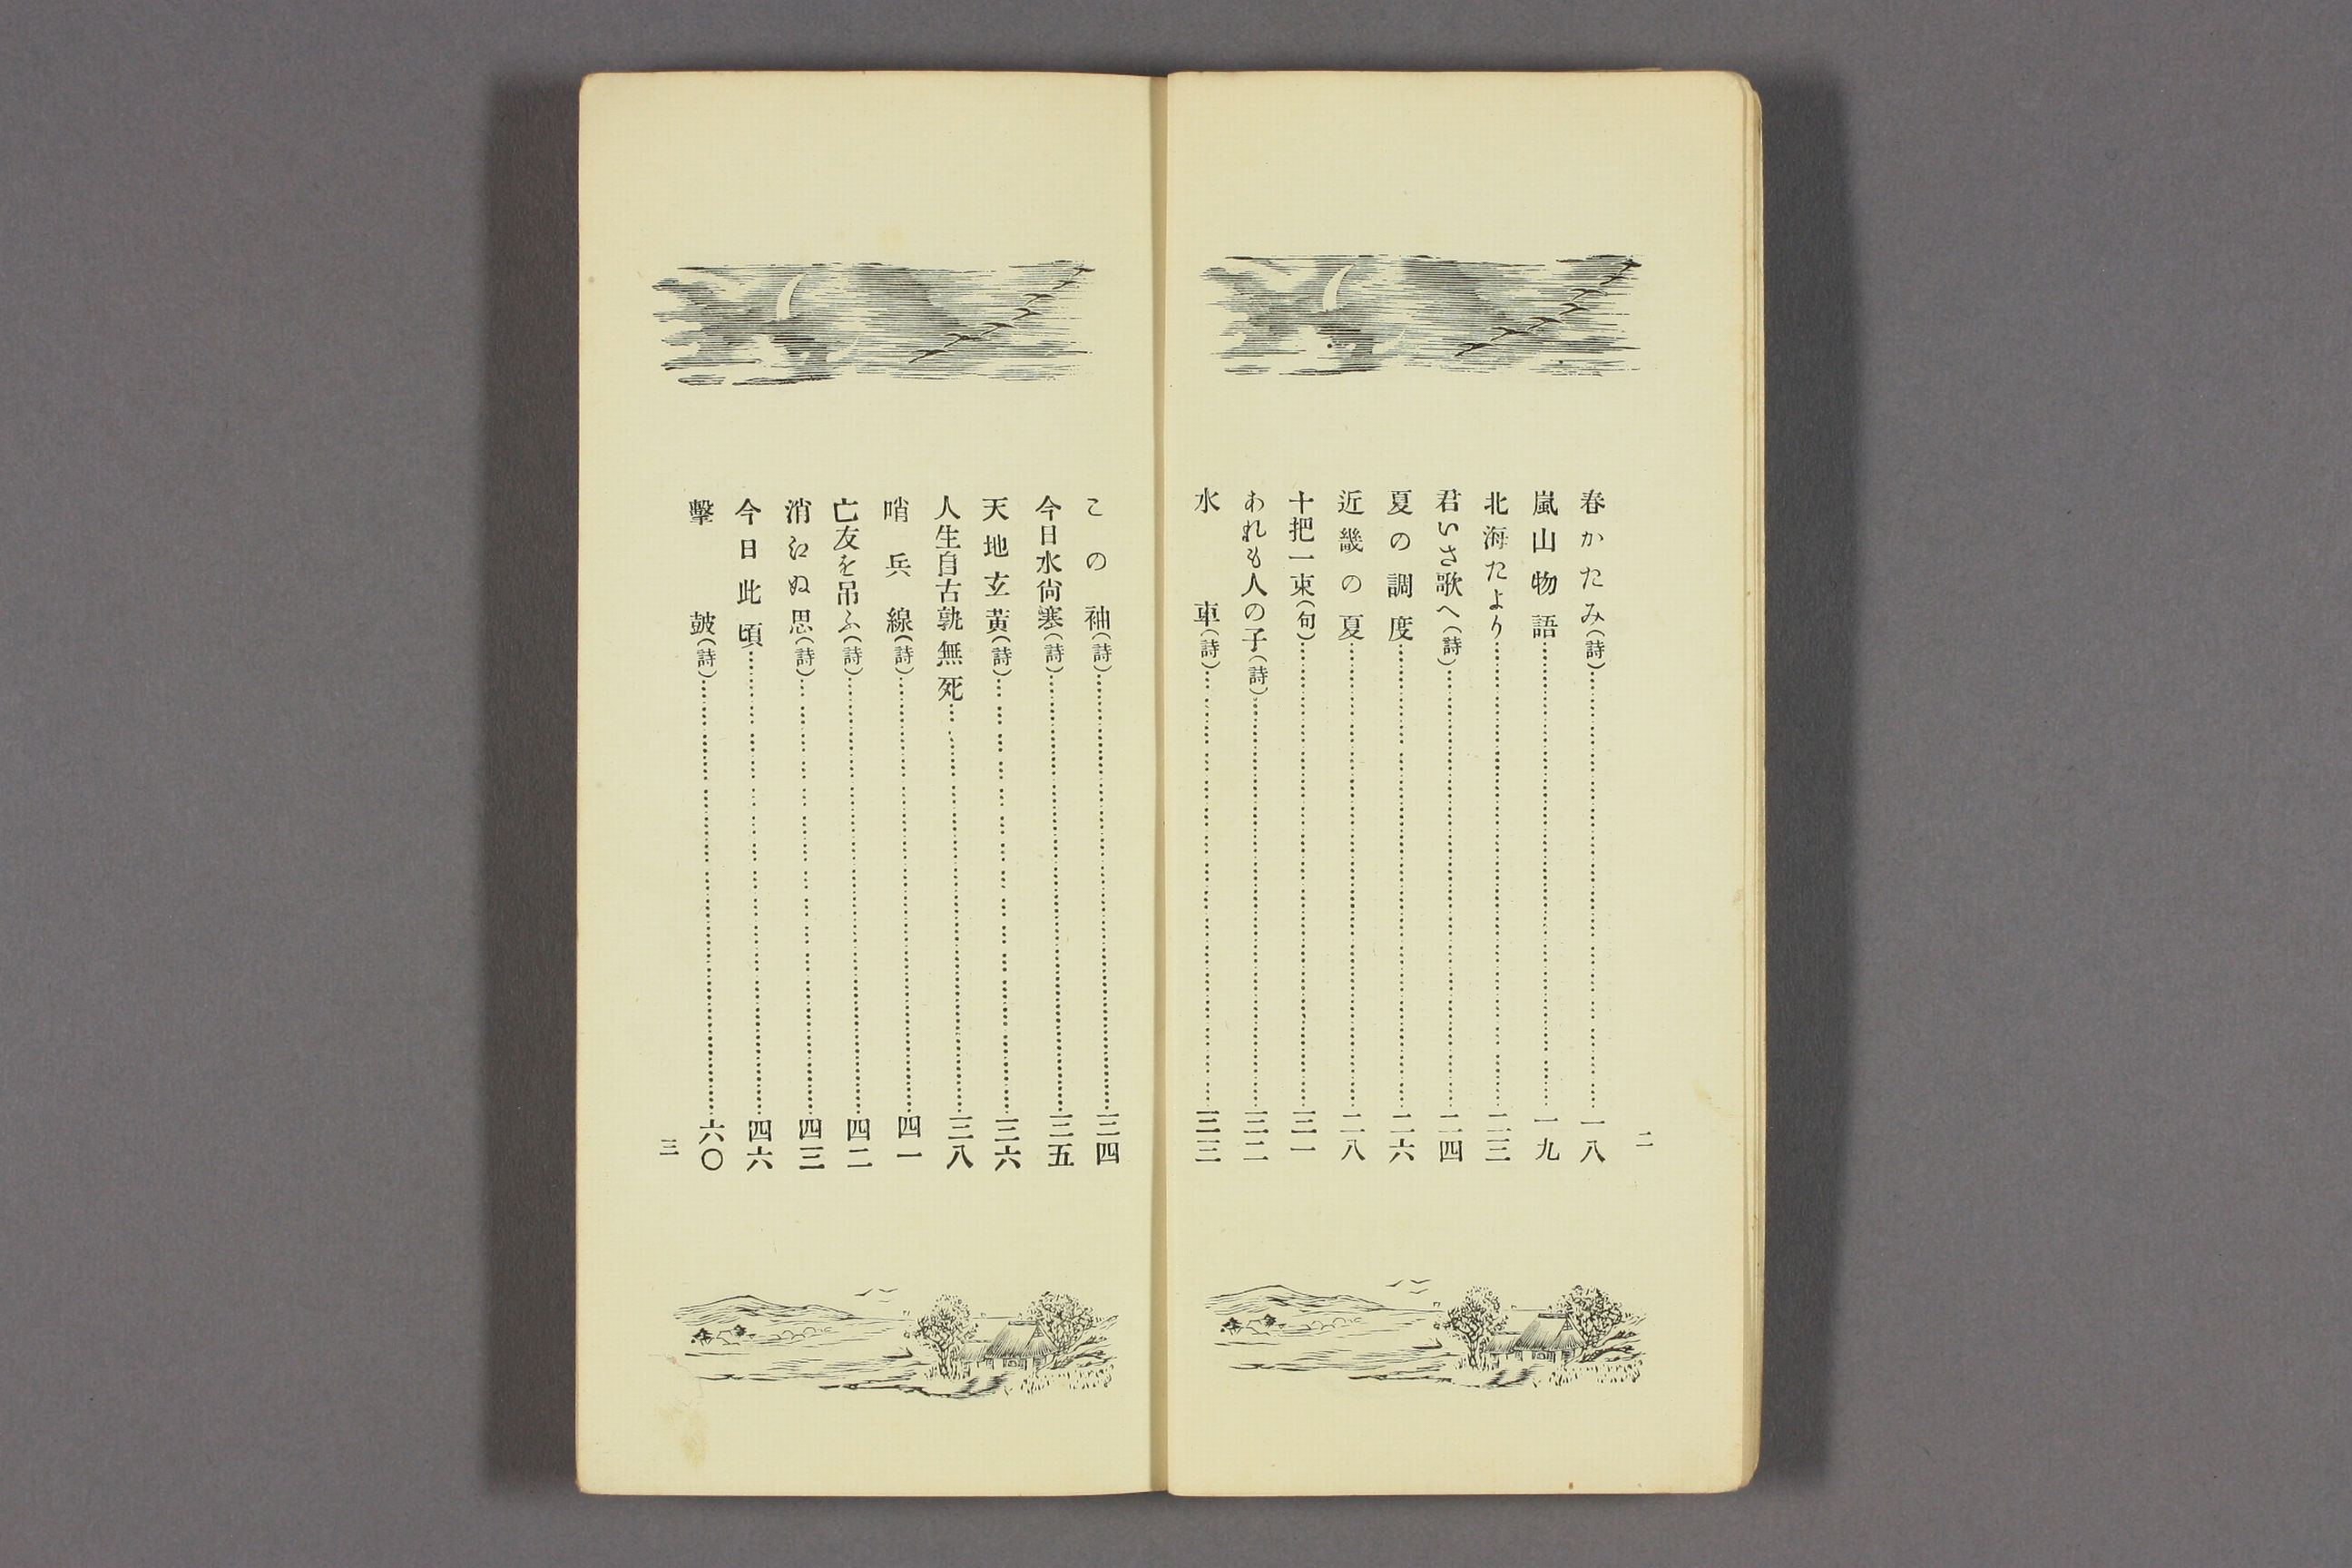 春かたみ(詩)……一八
嵐山物語……一九
北海たより……二三
君いさ歌へ(詩)……二四
夏の調度……二六
近畿の夏……二八
十把一束(句)……三一
あれも人の子(詩)……三二
水車(詩)……三三
二
この袖(詩)……三四
今日水尙寒(詩)……三五
天地玄黃(詩)……三六
人生自古孰無死……三八
哨兵線(詩)……四一
亡友を吊ふ(詩)……四二
消えぬ思(詩)……四三
今日此頃……四六
擊皷(詩)……六〇
三